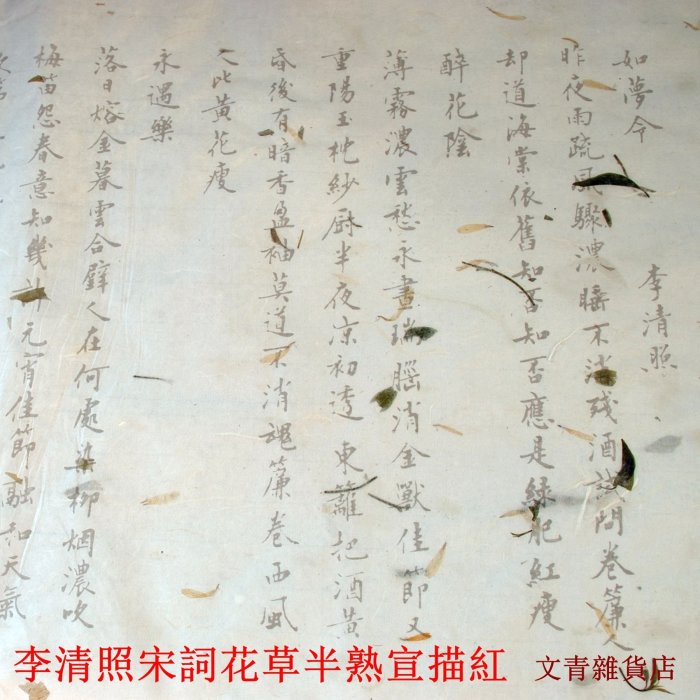 如夢令 李清照
昨夜雨疏風驟濃睡不消殘酒試問卷簾人
却道海棠依舊知否知否應是綠肥紅瘦
醉花陰
薄霧濃雲愁永晝瑞腦消金獸佳節又
重陽玉枕紗厨半夜凉初透東籬把酒黃
昏後有暗香盈袖莫道不消魂簾卷西風
人比黃花瘦
永遇樂
落日熔金暮雲合璧人在何處染柳烟濃吹
梅笛怨春意知幾許元宵佳節融和天氣
李清照宋詞花草半熟宣描紅 文青雜貨店